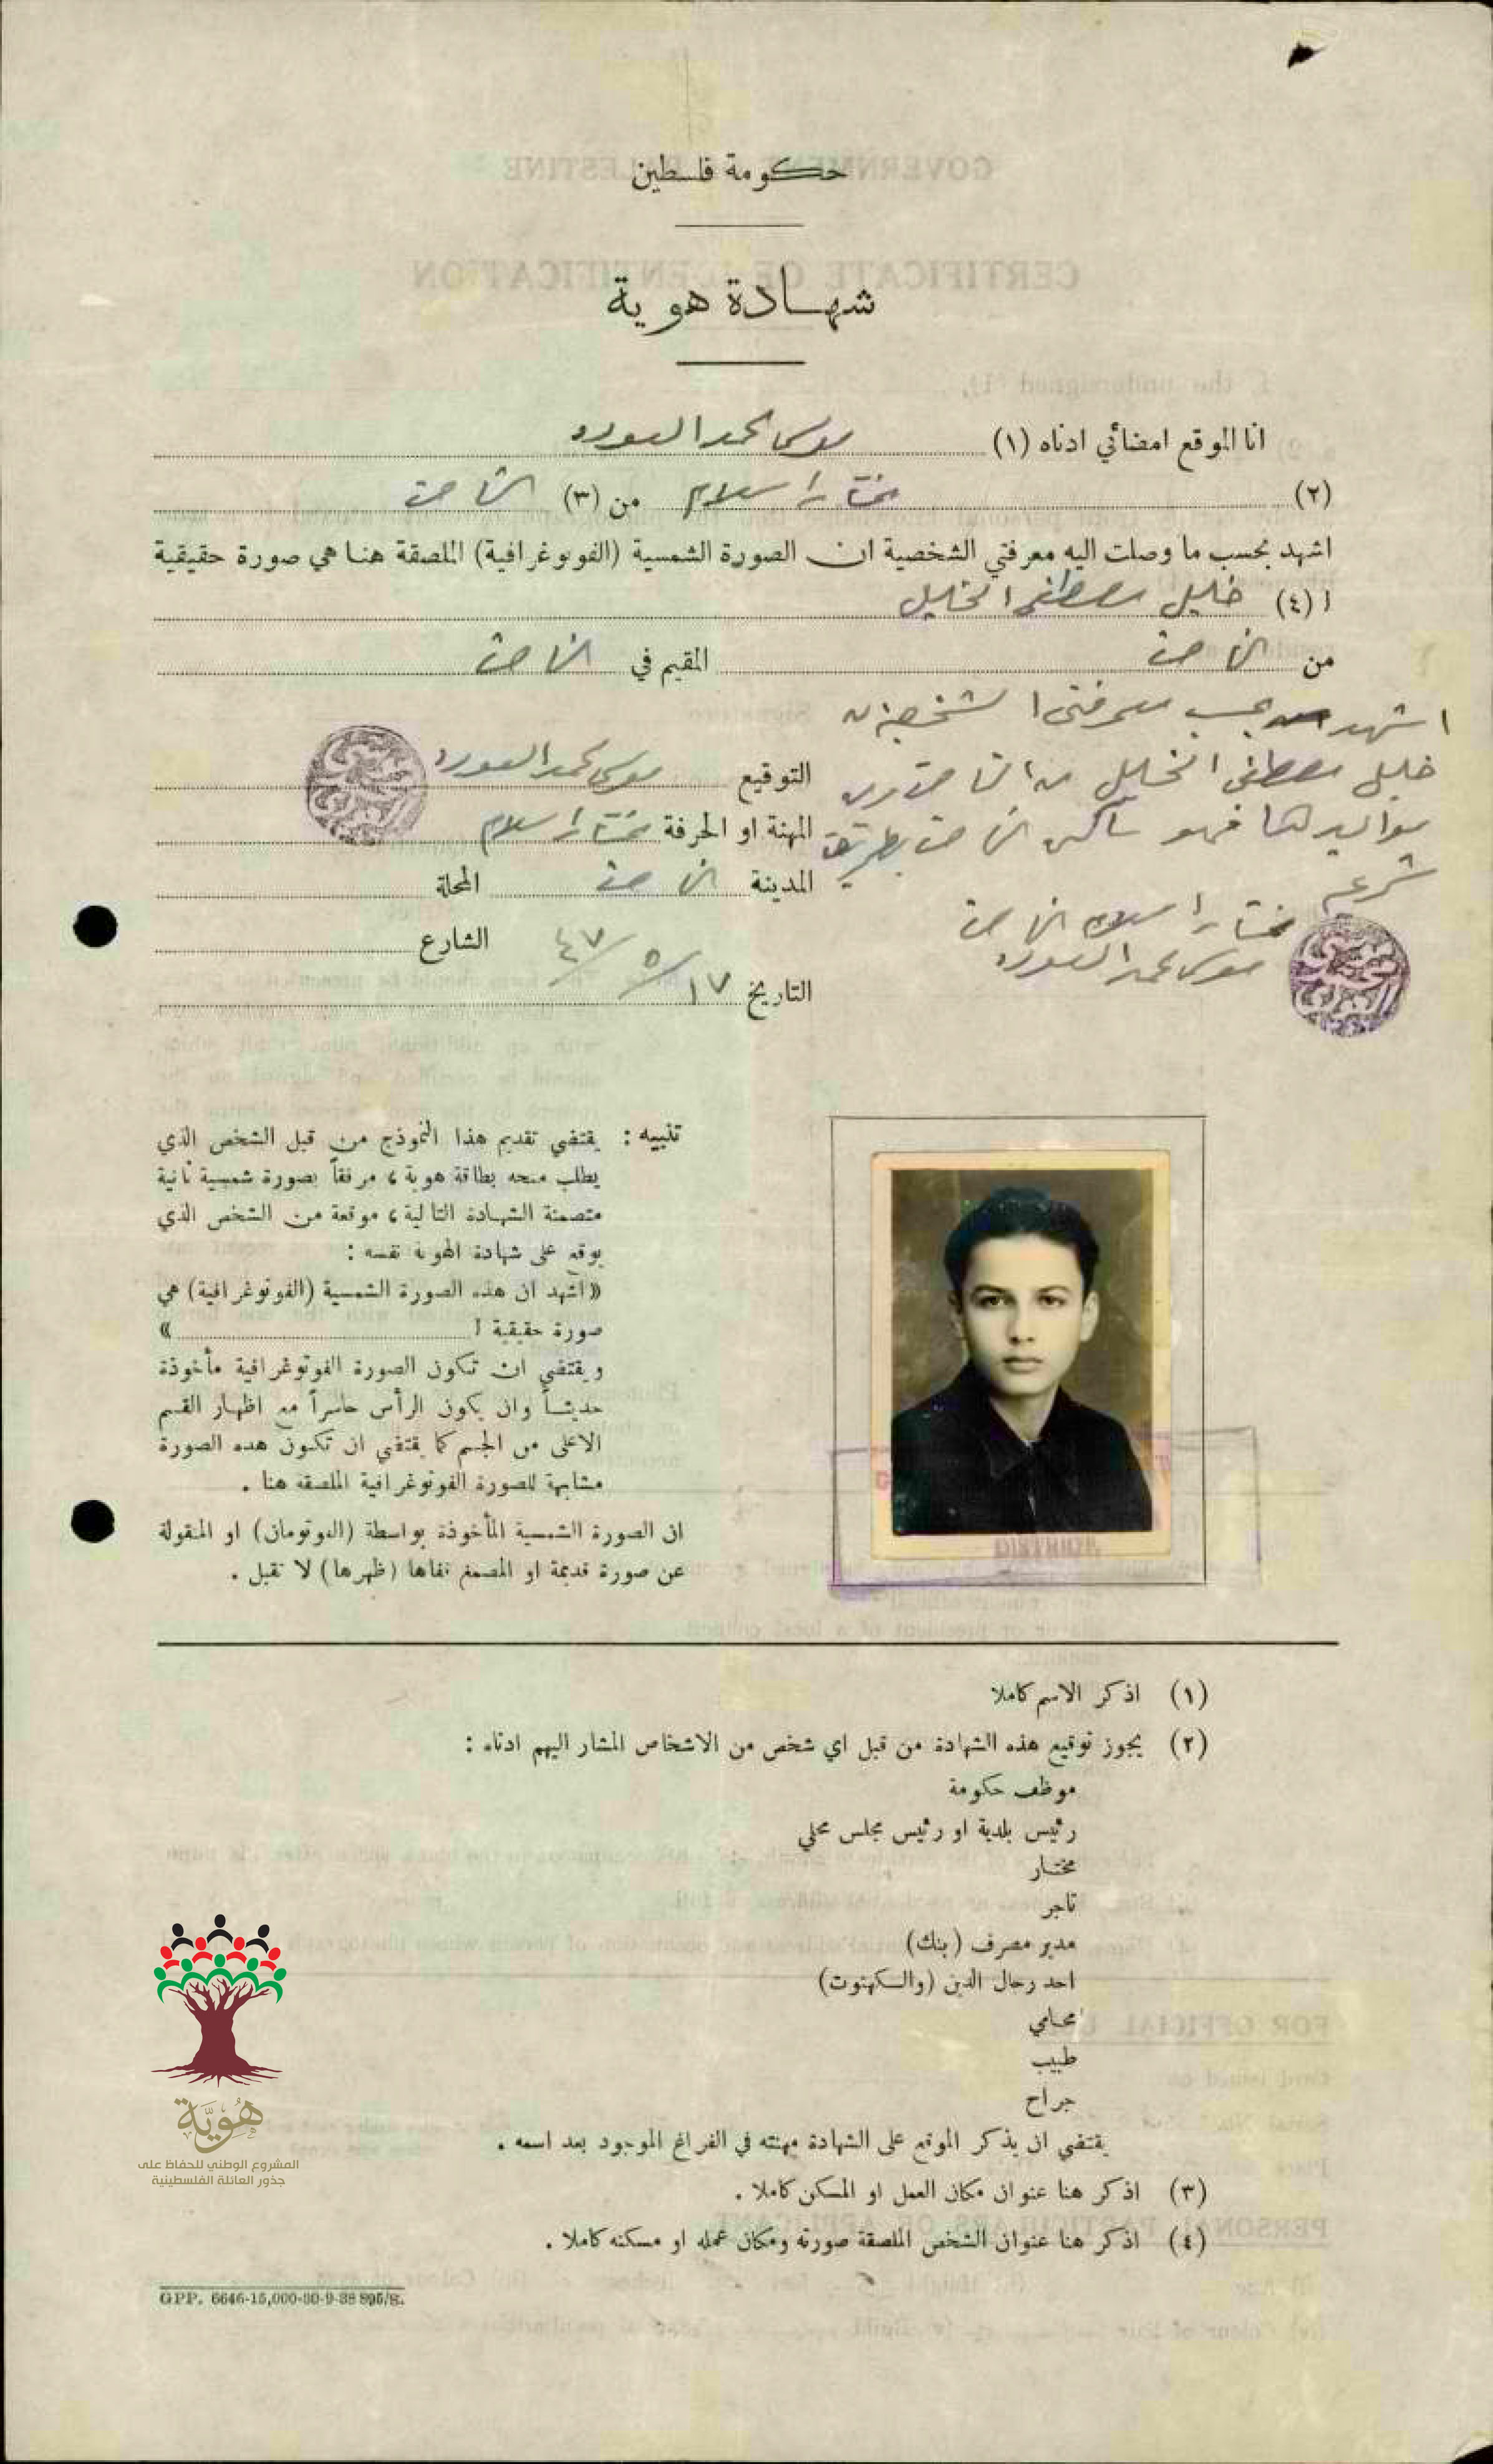 حكومة فلسطين
شهادة هوية
انا الموقع امضائي ادناه (١) موسى محمد
(٢) مختار اسلام من (٣) الناصرة
اشهد بحسب ما وصلت اليه معرفتي الشخصية ان الصورة الشمسية (الفوتوغرافية) الملصقة هنا هي صورة حقيقية
ا (٤) خليل مصطفى الخليل
من الناصرة المقيم في الناصرة
اشهد بحسب معرفتي الشخصية ان
خليل مصطفى الخليل من الناصرة ومن
مواليدها فهو ساكن الناصرة بطريقة
شرعية
مختار اسلام الناصرة
موسى محمد
التوقيع موسى محمد
المهنة او الحرفة مختار اسلام
المدينة الناصرة المحلة
الشارع
التاريخ ١٧/٥/٤٧
تنبيه : يقتضي تقديم هذا النموذج من قبل الشخص الذي
يطلب منحه بطاقة هوية ، مرفقاً بصورة شمسية ثانية
متضمنة الشهادة التالية ، موقعة من الشخص الذي
يوقع على شهادة الهوية نفسه :
«اشهد ان هذه الصورة الشمسية (الفوتوغرافية) هي
صورة حقيقية ا »
ويقتضي ان تكون الصورة الفوتوغرافية مأخوذة
حديثاً وان يكون الرأس حاسراً مع اظهار القسم
الاعلى من الجسم كما يقتضي ان تكون هذه الصورة
مشابهة للصورة الفوتوغرافية الملصقة هنا .
ان الصورة الشمسية المأخوذة بواسطة او المنقولة
عن صورة قديمة او المصمغ قفاها (ظهرها) لا تقبل .
DISTRICT
(١) اذكر الاسم كاملا
(٢) يجوز توقيع هذه الشهادة من قبل اي شخص من الاشخاص المشار اليهم ادناه :
موظف حكومة
رئيس بلدية او رئيس مجلس محلي
مختار
تاجر
مدير مصرف (بنك)
احد رجال الدين (والكهنوت)
محامي
طبيب
جراح
يقتضي ان يذكر الموقع على الشهادة مهنته في الفراغ الموجود بعد اسمه .
(٣) اذكر هنا عنوان مكان العمل او المسكن كاملا .
(٤) اذكر هنا عنوان الشخص الملصقة صورته ومكان عمله او مسكنه كاملا .
GPP. 6646-15,000-30-9-38 895/S.
هُوِيَّة
المشروع الوطني للحفاظ على
جذور العائلة الفلسطينية